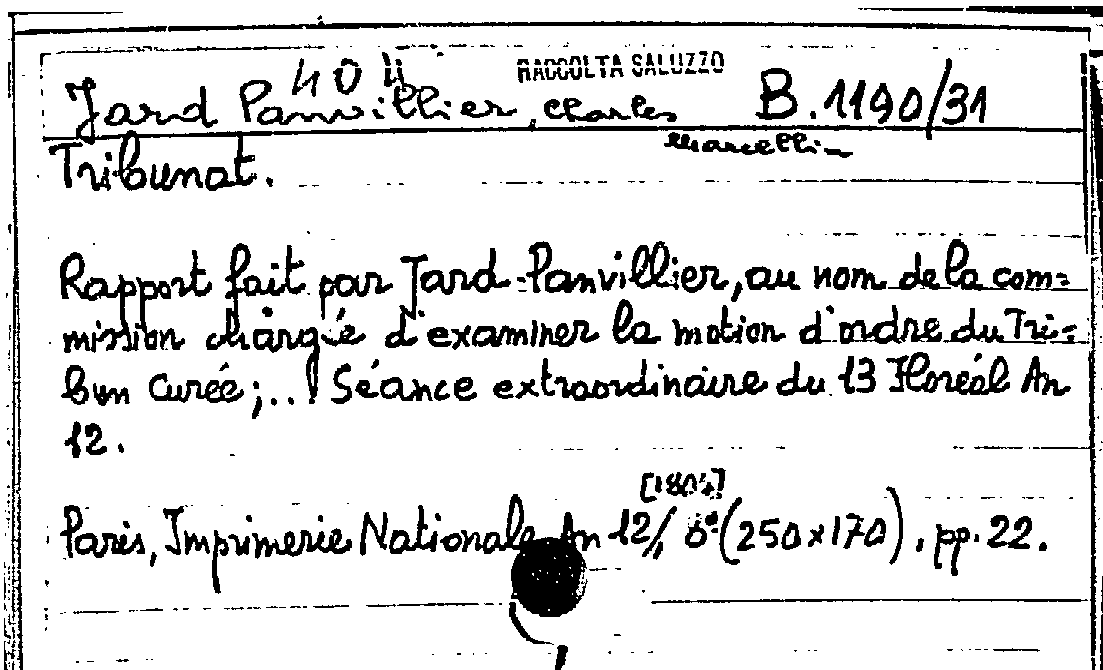 404 RACCOLTA SALUZZO
Jard Panvillier, Charles B. 1190/31
Marcellin
Tribunat.
Rapport fait par Jard-Panvillier, au nom de la com=
mission chargée d'examiner la motion d'ordre du Tri=
bun Curée;..! Séance extraordinaire du 13 Floréal An
12.
[1804]
Paris, Imprimerie Nationale An 12/, 8° (250x170), pp. 22.